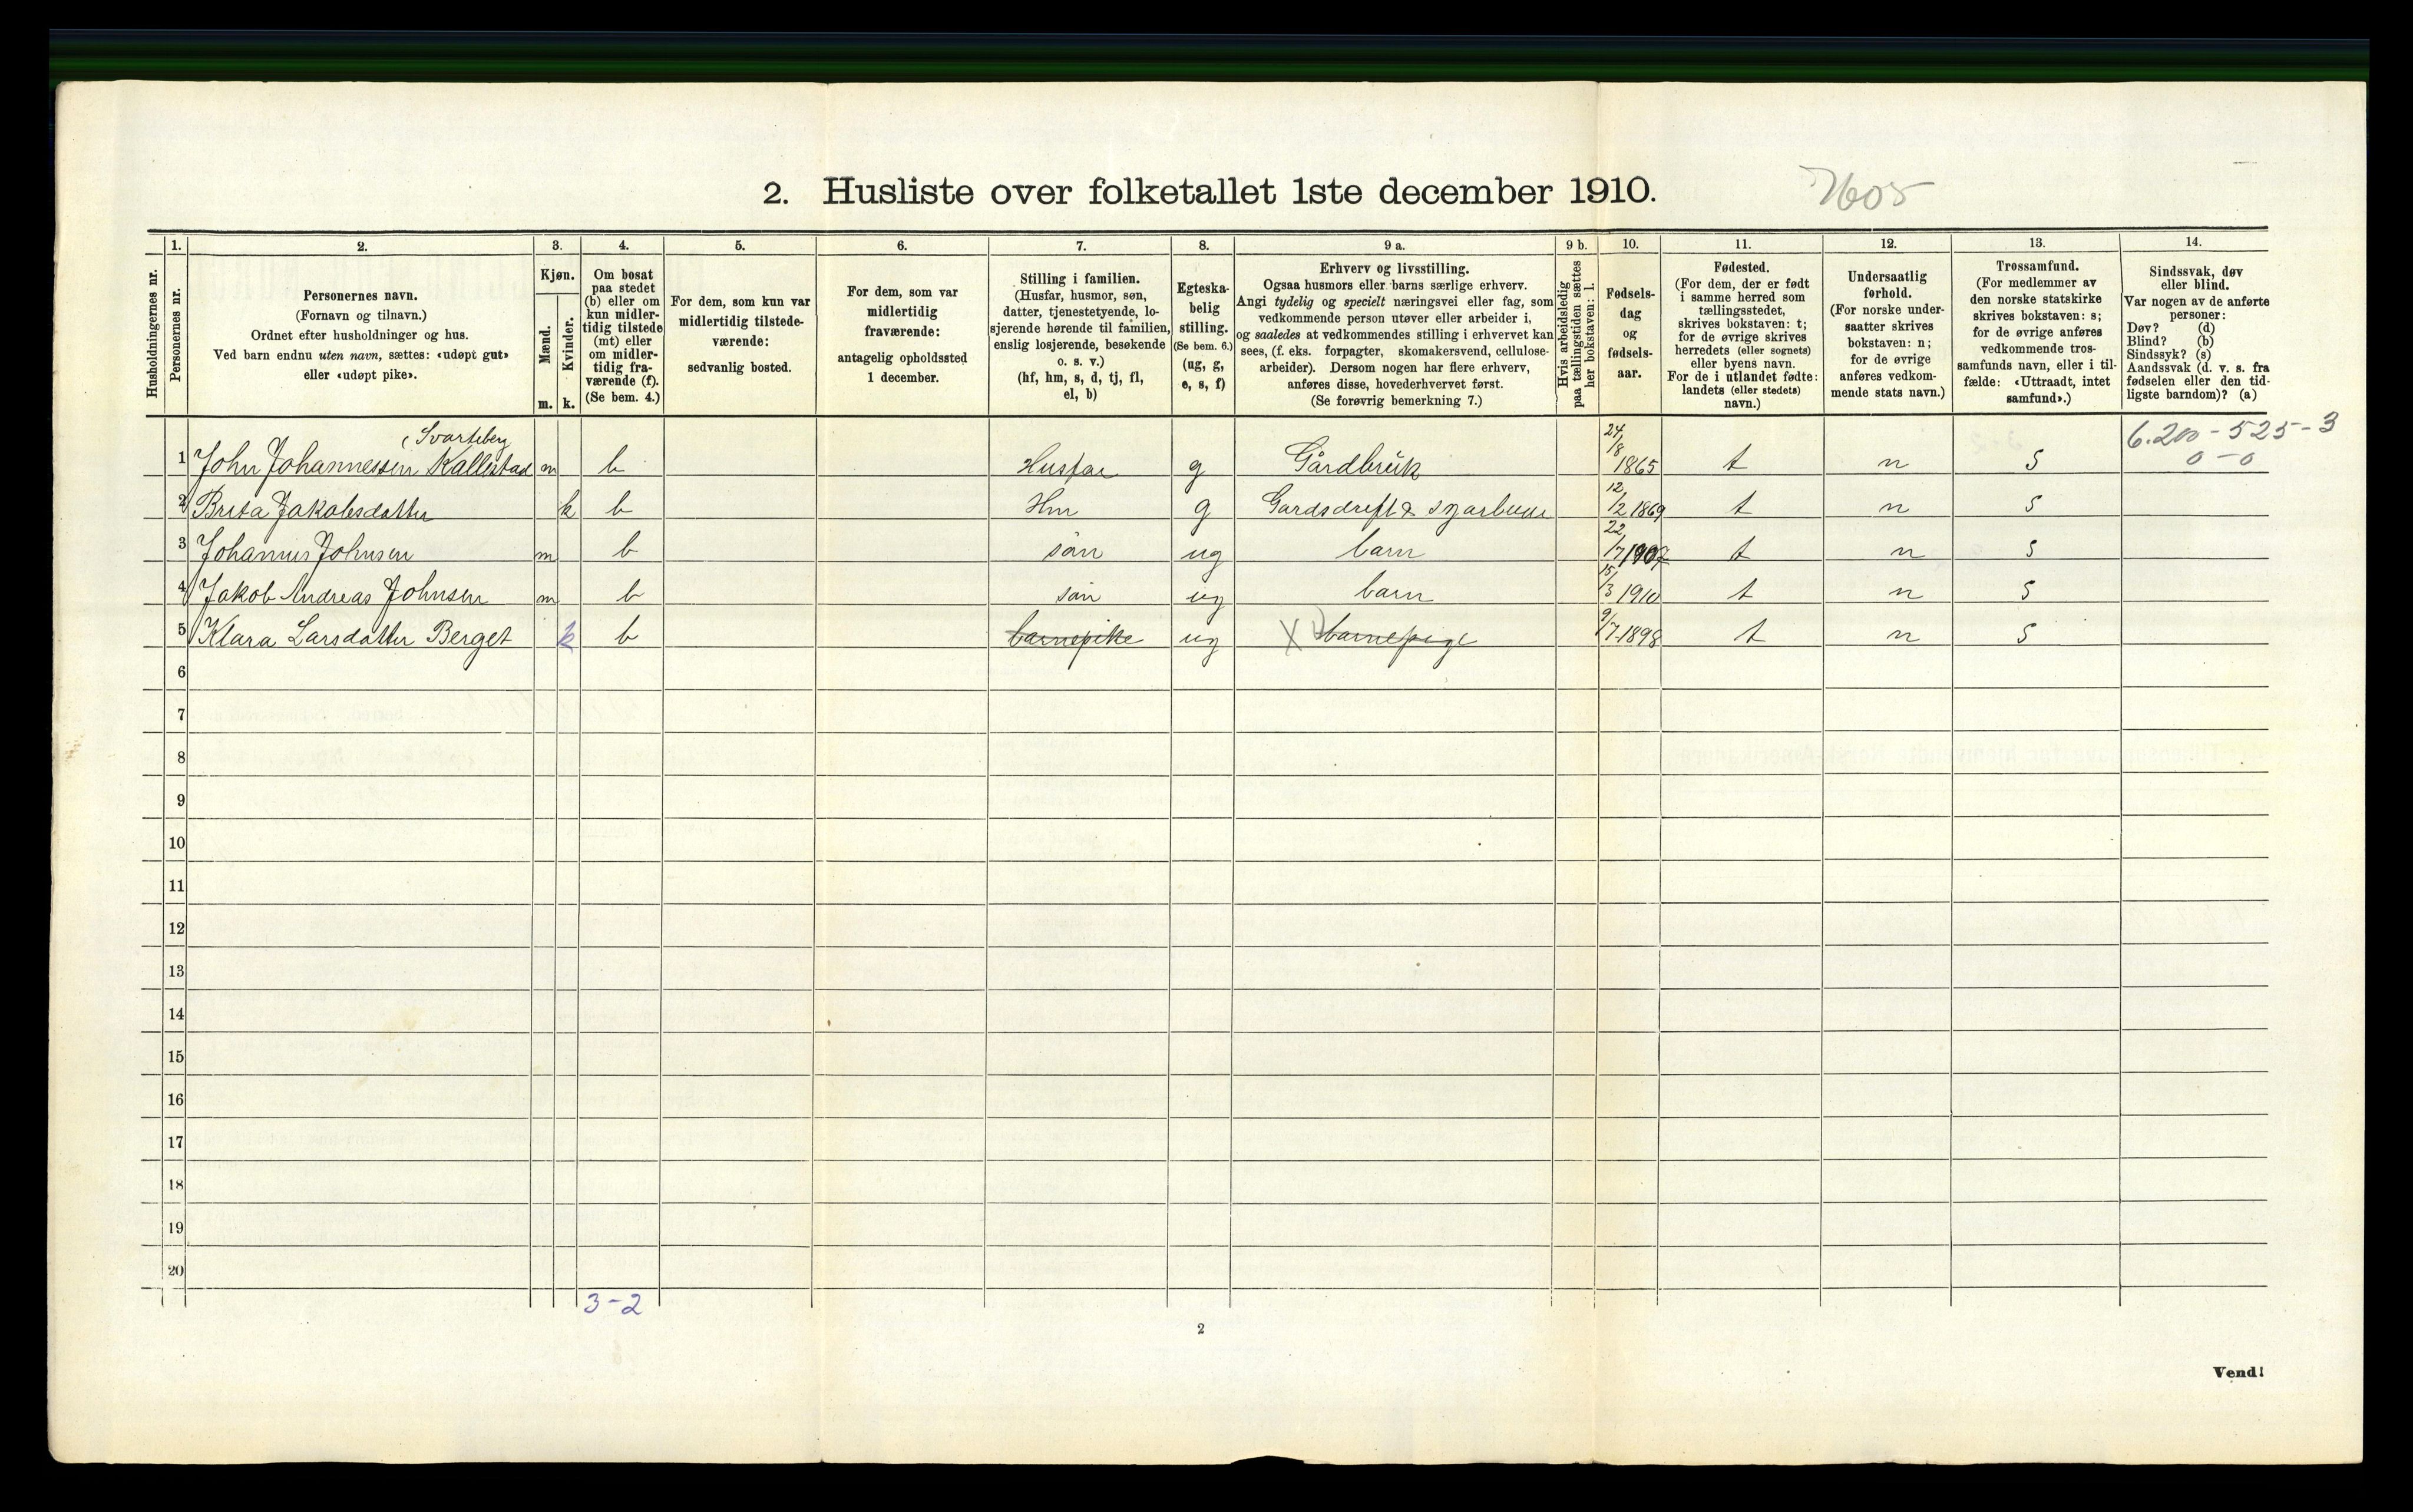 2. Husliste over folketallet 1ste december 1910.
Husholdningernes nr.
1.
Personernes nr.
2.
Personernes navn.
(Fornavn og tilnavn.)
Ordnet efter husholdninger og hus.
Ved barn endnu uten navn, sættes: «udøpt gut»
eller «udøpt pike».
3.
Kjøn.
Mænd.
Kvinder.
m. k.
4.
Om bosat
paa stedet
(b) eller om
kun midler-
tidig tilstede
(mt) eller
om midler-
tidig fra-
værende (f).
(Se bem. 4.)
5.
For dem, som kun var
midlertidig tilstede-
værende:
sedvanlig bosted.
6.
For dem, som var
midlertidig
fraværende:
antagelig opholdssted
1 december.
7.
Stilling i familien.
(Husfar, husmor, søn,
datter, tjenestetyende, lo-
sjerende hørende til familien,
enslig losjerende, besøkende
o. s. v.)
(hf, hm, s, d, tj, fl,
el, b)
8.
Egteska-
belig
stilling.
(Se bem. 6.)
(ug, g,
e, s, f)
9 a.
Erhverv og livsstilling.
Ogsaa husmors eller barns særlige erhverv.
Angi tydelig og specielt næringsvei eller fag, som
vedkommende person utøver eller arbeider i,
og saaledes at vedkommendes stilling i erhvervet kan
sees, (f. eks. forpagter, skomakersvend, cellulose-
arbeider). Dersom nogen har flere erhverv,
anføres disse, hovederhvervet først.
(Se forøvrig bemerkning 7.)
9 b.
Hvis arbeidsledig
paa tællingstiden sættes
her bokstaven: l.
10.
Fødsels-
dag
og
fødsels-
aar.
11.
Fødested.
(For dem, der er født
i samme herred som
tællingsstedet,
skrives bokstaven: t;
for de øvrige skrives
herredets (eller sognets)
eller byens navn.
For de i utlandet fødte:
landets (eller stedets)
navn.)
12.
Undersaatlig
forhold.
(For norske under-
saatter skrives
bokstaven: n;
for de øvrige
anføres vedkom-
mende stats navn.)
13.
Trossamfund.
(For medlemmer av
den norske statskirke
skrives bokstaven: s;
for de øvrige anføres
vedkommende tros-
samfunds navn, eller i til-
fælde: «Uttraadt, intet
samfund».)
14.
Sindssvak, døv
eller blind.
Var nogen av de anførte
personer:
Døv? (d)
Blind? (b)
Sindssyk? (s)
Aandssvak (d. v. s. fra
fødselen eller den tid-
ligste barndom)? (a)
(Svarteberg
6.200-525-3
0-0
1 John Johannessen Kallestad m b Husfar g Gårdbruk 24/8 1865 t n S
2 Brita Jakobsdatter k b Hm g Gardsdrift & 12/2 1869 t n S
3 Johannes Johnsen m b sön ug barn 22/7 1907 t n S
4 Jakob Andreas Johnsen m b sön ug barn 15/3 1910 t n S
5 Klara Larsdatter Berget k b barnepike ug X barnepige 9/7-1898 t n S
6
7
8
9
10
11
12
13
14
15
16
17
18
19
20
3-2
2
Vend!